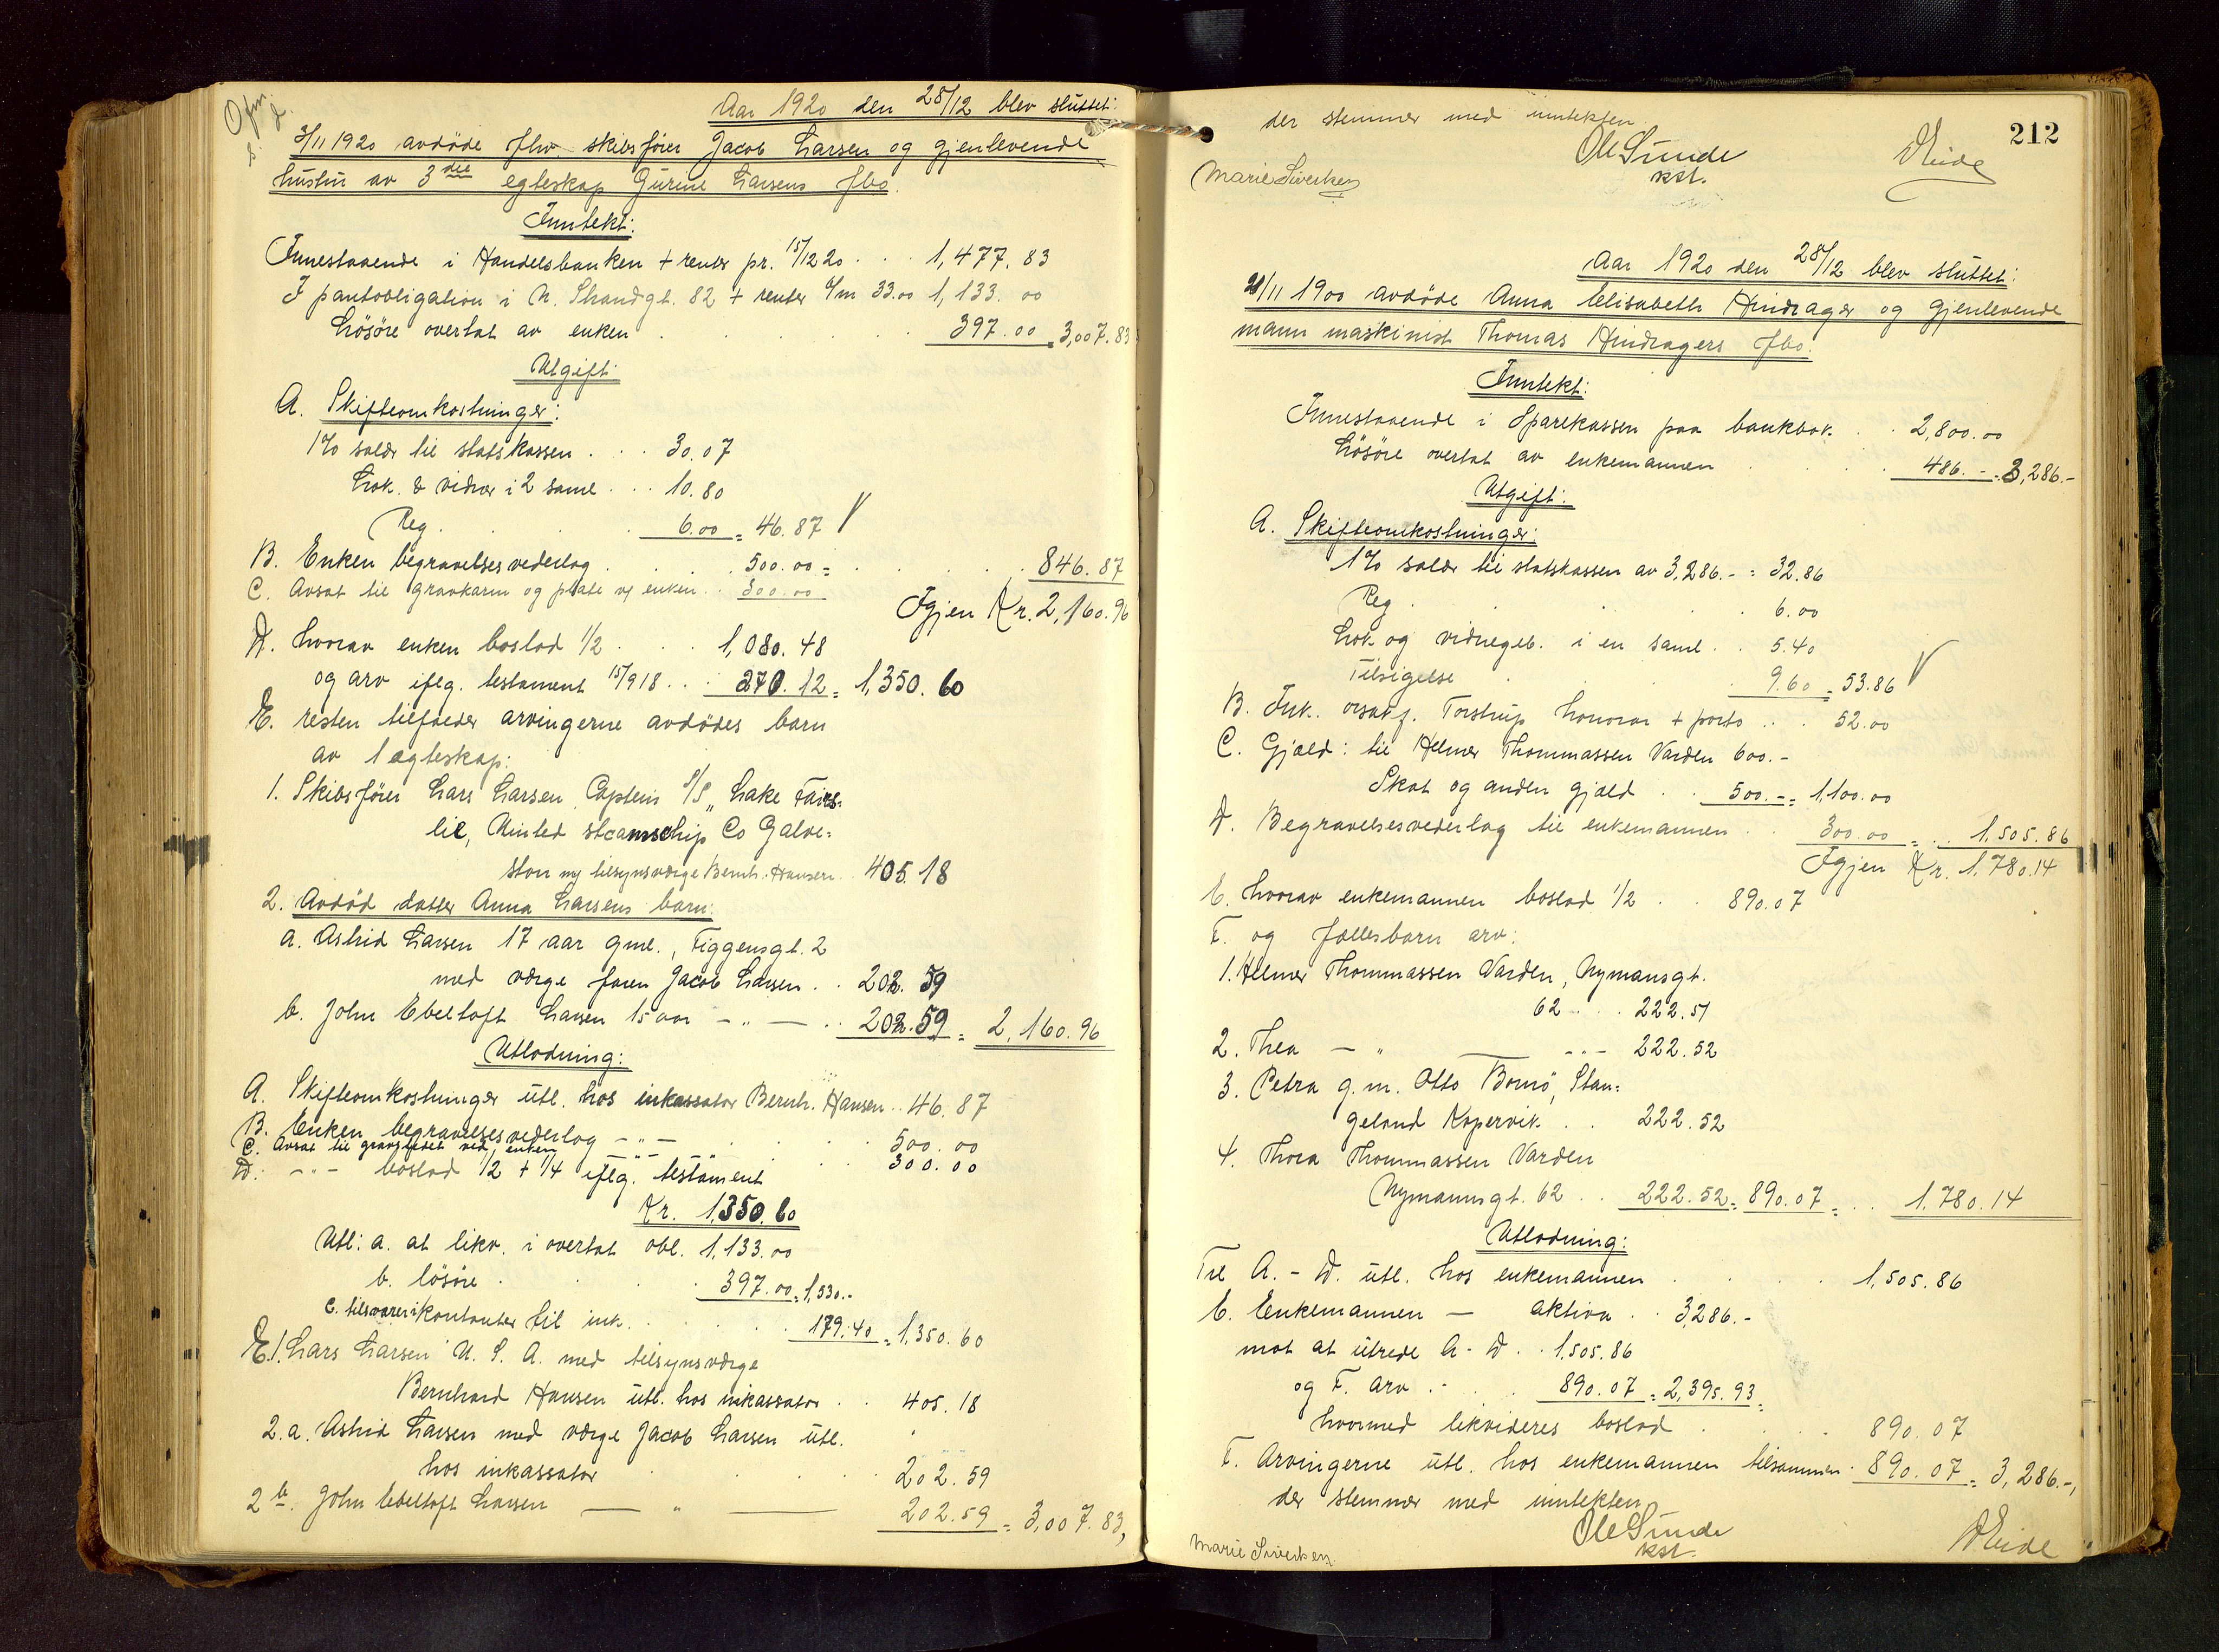 Aar 1920 den 28/12 blev sluttet:
3/11 1920 avdöde fhv. skibsförer Jacob Larsen og gjenlevende
hustru av 3die egteskap Gurine Larsens fbo.
Inntekt:
Innestaaende i Handelsbanken + renter pr. 15/12 20 . . . 1,477. 83
I pantobligation i N. Strandgt. 82 + renter 6/m 33.00 1,133. 00
Lösöre overtat av enken . . . . 397.00 = 3,007.83
Utgift:
A. Skifteomkostninger:
1% salær til statskassen . . . 30.07
Lok. & vidner i 2 saml. . . 10.80
Reg. . . . 6.00 = 46.87 V
B. Enken begravelsesvederlag . . . . 500.00 = . . . . 846.87
C. Avsat til gravkarm og plate v/ enken . . 300.00
Igjen Kr. 2,160.96
D. hvorav enken boslod 1/2 . . . 1,080.48
og arv iflg. testament 15/9 18 . . . 270.12 = 1,350.60
E. resten tilfalder arvingerne avdödes barn
av 1 egteskap:
1. Skibsförer Lars Larsen, Captein S/S „Lake Fairs-
lie, United steamschip Co Galve=
ston m/ tilsynsværge Bernh. Hansen . . 405.18
2. Avdöd datter Anna Larsens barn:
a. Astrid Larsen 17 aar gml., Figgensgt. 2
med værge faren Jacob Larsen . . 202.59
b. John Ebeltoft Larsen 15 aar — „ — . . 202.59 = 2,160.96
Utlodning:
A. Skifteomkostninger utl. hos inkassator Bernh. Hansen . . 46.87
B. Enken begravelsesvederlag — „ — . . . 500.00
C. Avsat til gravstedet ved enken — „ — 300.00
D. — „ — boslod 1/2 + 1/4 iflg. testament
Kr. 1,350.60
Utl: a. at likv. i overtat obl. 1,133.00
b. lösöre . . . . 397.00 = 1,530.-
c. tilsvarer i kontanter til ink. . . . 179.40 = 1,350.60
E.1. Lars Larsen U. S. A. med tilsynsværge
Bernhard Hansen utl. hos inkassator . . 405.18
2.a. Astrid Larsen med værge Jacob Larsen utl.
hos inkassator . . . . 202.59
2 b. John Ebeltoft Larsen — „ — 202.59 = 3,007.83,
212
der stemmer med inntekten.
Ole Sunde
kst.
Marie Sivertsen
D Eide
Aar 1920 den 28/12 blev sluttet:
28/11 1900 avdöde Anna Elisabeth Hindrager og gjenlevende
mann maskinist Thomas Hindragers fbo.
Inntekt:
Innestaaende i Sparekassen paa bankbok . . 2,800.00
Lösöre overtat av enkemannen . . . 486.- = 3,286.-
Utgift:
A. Skifteomkostninger:
1% salær til statskassen av 3,286.- = 32.86
Reg. . . . . 6.00
Lok og vidnegeb. i en saml . . 5.40
Tilsigelse . . . 9.60 = 53.86 V
B. Ink. orsakf. Torstrup honorar + porto . . . 52.00
C. Gjæld: til Helmer Thommassen Varden 600.-
Skat og anden gjæld . . 500.- = 1,100.00
D. Begravelsesvederlag til enkemannen . . 300.00 = . . 1,505.86
Igjen Kr. 1,780.14
E. hvorav enkemannen boslod 1/2 . . 890.07
F. og fællesbarn arv:
1. Helmer Thommassen Varden, Nymansgt.
62 . . . 222.51
2. Thea — „ — - . . - 222.52
3. Petra g.m. Otto Bornö, Stan=
geland Kopervik . . 222.52
4. Thora Thommassen Varden
Nymannsgt. 62 . . 222.52 = 890.07 = . . 1,780.14
Utlodning:
Til A. - D. utl. hos enkemannen . . . . 1,505.86
E. Enkemannen — aktiva . . 3,286.-
mot at utrede A - D . . 1,505.86
og F. arv . . . 890.07 = 2,395.93 =
hvormed likvideres boslod . . . 890.07
F. Arvingerne utl. hos enkemannen tilsammen . 890.07 = 3,286.-,
der stemmer med inntekten,
Ole Sunde
kst.
Marie Sivertsen
D Eide